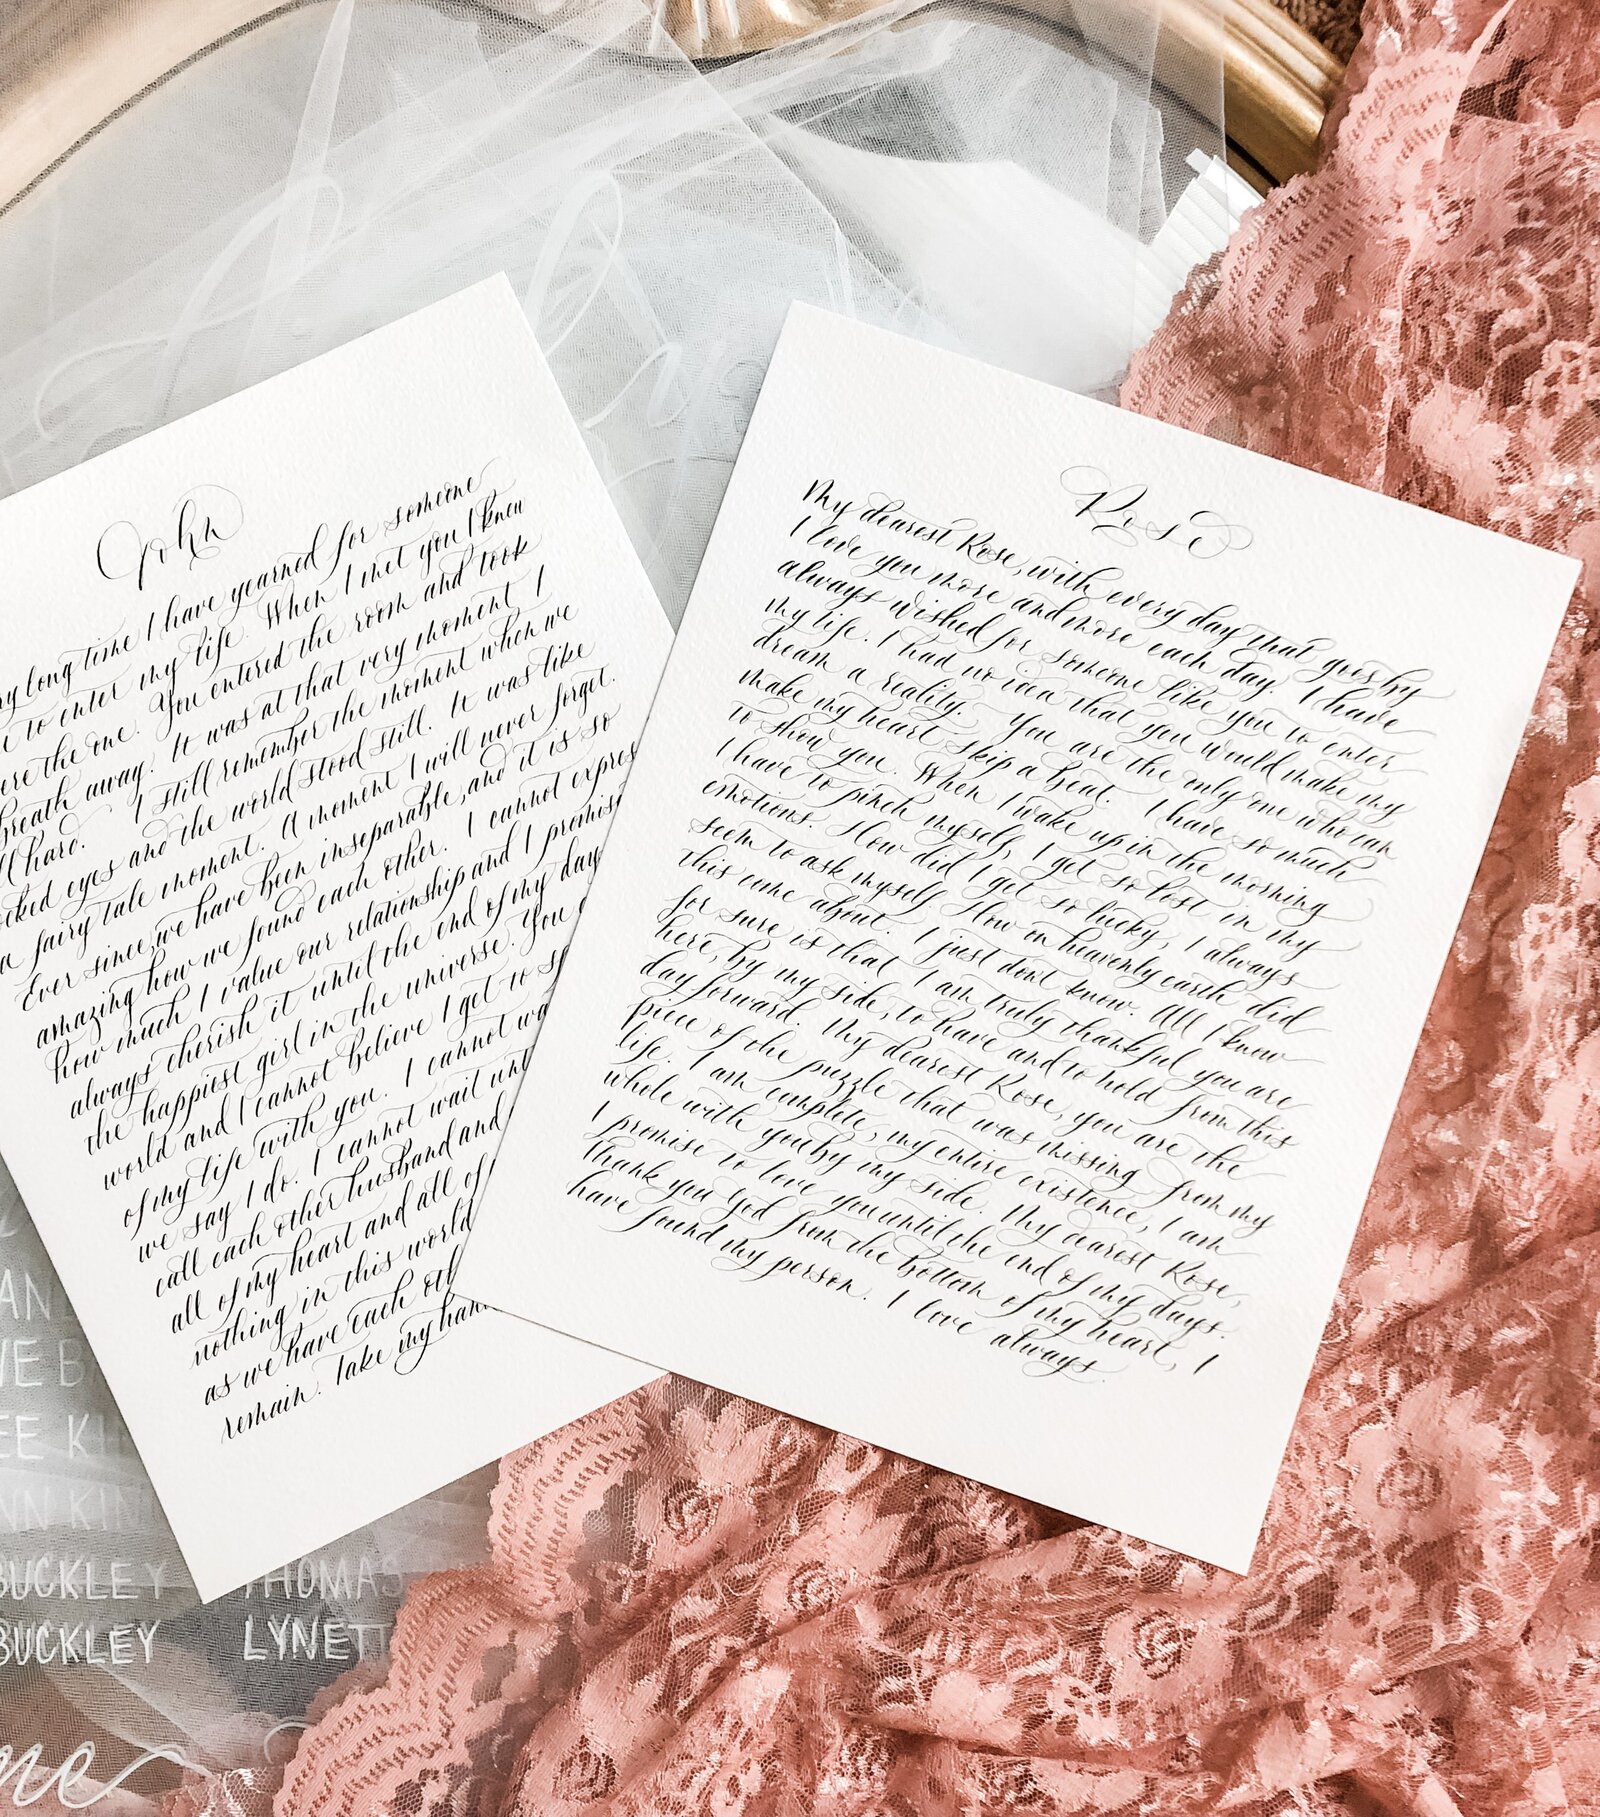 John
ry long time I have yearned for someone
e to enter my life. When I met you I knew
ere the one. You entered the room and took
breath away. It was at that very moment I
ll hard. I still remember the moment when we
ocked eyes and the world stood still. It was like
a fairy tale moment. A moment I will never forget.
Ever since, we have been inseparable, and it is so
amazing how we found each other. I cannot expres
how much I value our relationship and I promise
always cherish it until the end of my day
the happiest girl in the universe. You
world and I cannot believe I get to sp
of my life with you. I cannot wa
we say I do. I cannot wait unt
call each other husband and
all of my heart and all of
nothing in this world
as we have each oth
remain. Take my han
Rose
My dearest Rose, with every day that goes by
I love you more and more each day. I have
always wished for someone like you to enter
my life. I had no idea that you would make my
dream a reality. You are the only one who can
make my heart skip a beat. I have so much
to show you. When I wake up in the morning
I have to pinch myself, I get so lost in my
emotions. How did I get so lucky, I always
seem to ask myself. How on heavenly earth did
this come about. I just don't know. All I know
for sure is that I am truly thankful you are
here, by my side, to have and to hold from this
day forward. My dearest Rose, you are the
piece of the puzzle that was missing from my
life. I am complete, my entire existence, I am
whole with you by my side. My dearest Rose,
I promise to love you until the end of my days.
Thank you God from the bottom of my heart, I
have found my person. I love
always.
AN
VE B
EE KI
NN KIN
BUCKLEY THOMAS
BUCKLEY LYNETT
me